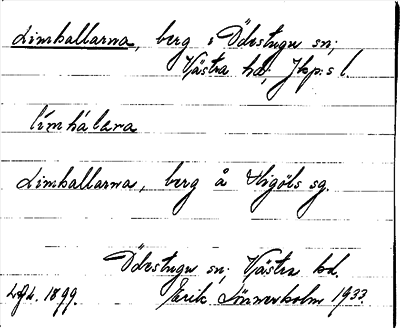 Limhallarna, berg i Ödestugu sn;
Västra hd; Jkp:s l.
límhálara
Limhallarna, berg å Stigöls sg.
Ödestugu sn; Västra hd.
1899. Erik Linnerholm 1933